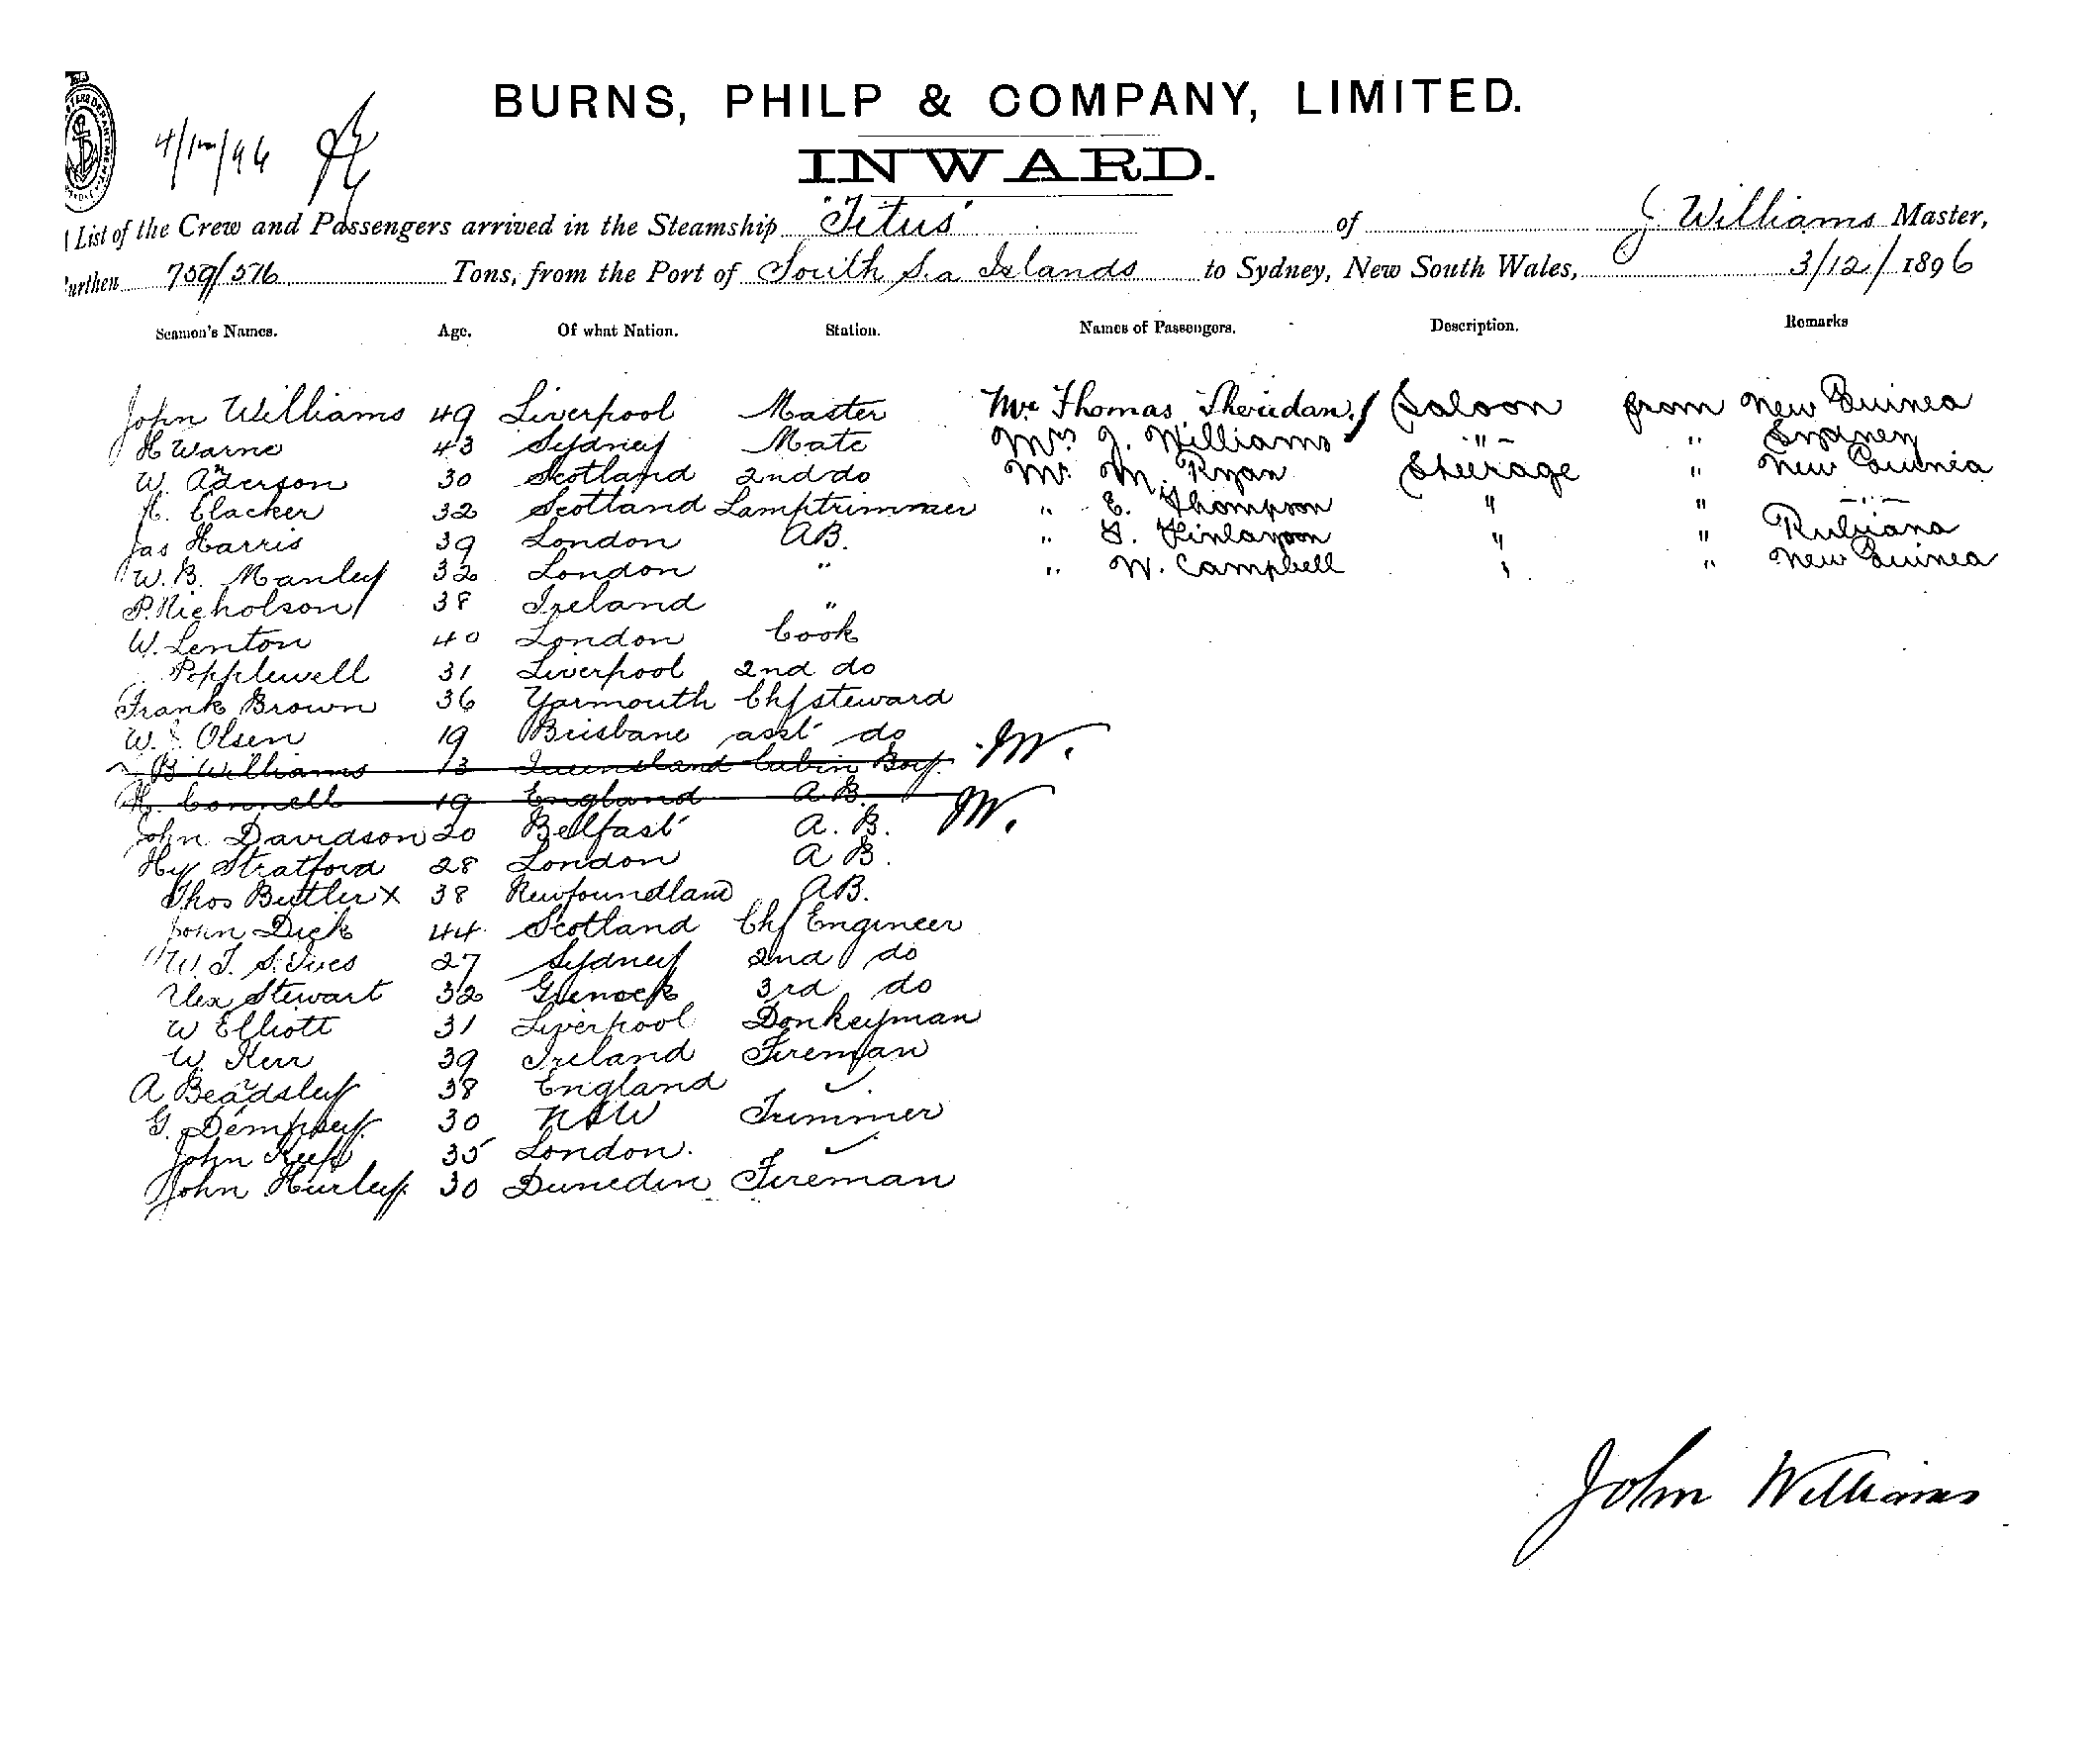 BURNS, PHILP & COMPANY, LIMITED.
4/12/96
INWARD.
List of the Crew and Passengers arrived in the Steamship "Titus" of J. Williams Master,
Burthen 759/576 Tons, from the Port of South Sea Islands to Sydney, New South Wales, 3/12/1896
Seamen's Names. Age. Of what Nation. Station. Names of Passengers. Description. Remarks
John Williams 49 Liverpool Master Mr Thomas Sheridan. Saloon from New Guinea
H Warne 43 Sydney Mate Mrs J. Williams -"- " Sydney
W. Aderson 30 Scotland 2nd do Mr. M. Ryan Steerage " New Guinea
H. Clacker 32 Scotland Lamptrimmer " E. Thompson " " -"-
Jas Harris 39 London AB. " Finlayson " " Rubiana
W. B. Manley 32 London " " W. Campbell " " New Guinea
P. Nicholson 38 Ireland "
W. Lenton 40 London Cook
Popplewell 31 Liverpool 2nd do
Frank Brown 36 Yarmouth Chf steward
W. J. Olsen 19 Brisbane asst do
B Williams 13 Queensland Cabin Boy. JW.
H. Connell 19 England A.B. JW.
John Davidson 20 Belfast A. B.
Hy Stratford 28 London A B.
Thos Buttler x 38 Newfoundland AB.
John Dick 44 Scotland Chf Engineer
W. T. S. Ives 27 Sydney 2nd do
Alex Stewart 32 Greenock 3rd do
W Elliott 31 Liverpool Donkeyman
W. Kerr 39 Ireland Fireman
A Beadsley 38 England
G. Dempsey. 30 NSW Trimmer
John Keefe 35 London.
John Hurley. 30 Dunedin Fireman
John Williams